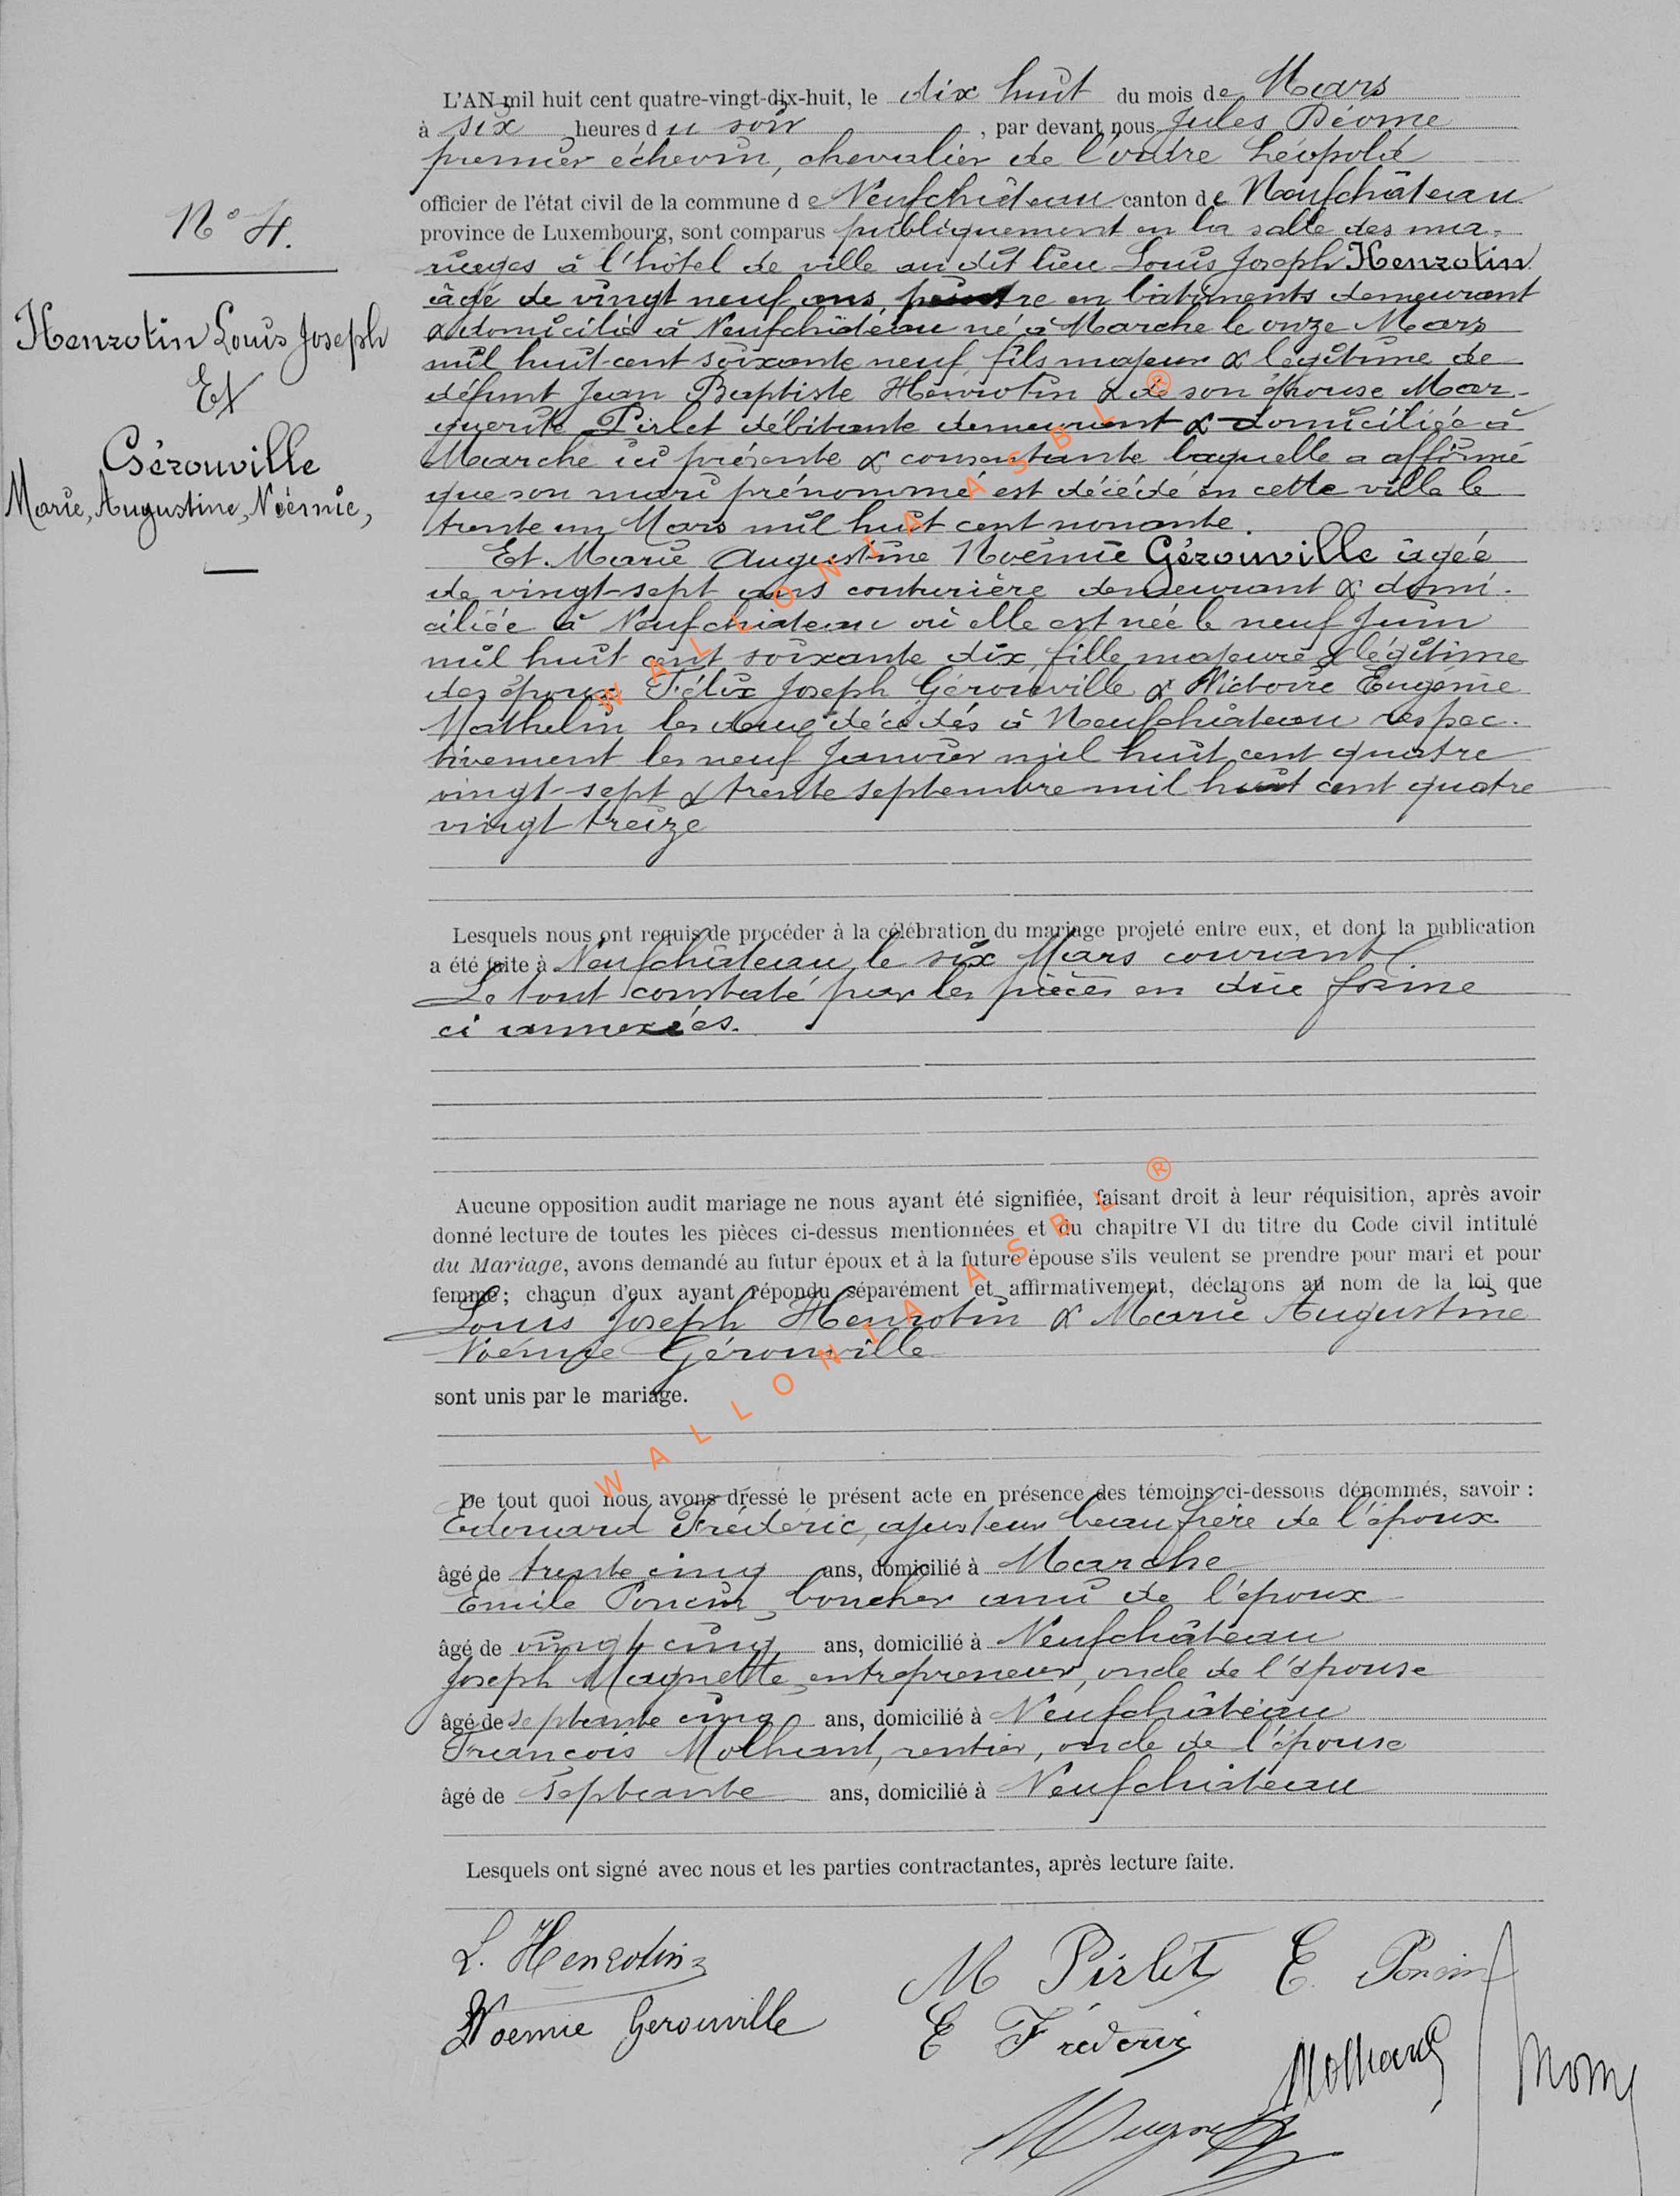 L'AN mil huit cent quatre-vingt-dix-huit, le dix huit du mois de Mars
à six heures du soir, par devant nous Jules Déome
premier échevin, chevalier de l'ordre Léopold
officier de l'état civil de la commune de Neufchâteau canton de Neufchâteau
province de Luxembourg, sont comparus publiquement en la salle des ma-
riages à l'hôtel de ville au dit lieu Louis Joseph Henrotin
âgé de vingt neuf ans, peintre en bâtiments demeurant
& domicilié à Neufchâteau né à Marche le onze Mars
mil huit cent soixante neuf, fils majeur & légitime de
défunt Jean Baptiste Henrotin & de son épouse Mar-
guerite Pirlet débitante demeurant & domiciliée à
Marche ici présente & consentante laquelle a affirmé
que son mari prénommé est décédé en cette ville le
trente un Mars mil huit cent nonante.
N° 4.
Henrotin Louis Joseph
Et
Gérouville
Marie, Augustine, Noémie,
Et Marie Augustine Noémie Gérouville âgée
de vingt-sept ans couturière demeurant & domi-
ciliée à Neufchâteau où elle est née le neuf Juin
mil huit cent soixante dix, fille majeure & légitime
des époux Félix Joseph Gérouville & Victoire Eugénie
Mathelin les deux décédés à Neufchâteau respec-
tivement les neuf Janvier mil huit cent quatre
vingt-sept & trente septembre mil huit cent quatre
vingt treize
Lesquels nous ont requis de procéder à la célébration du mariage projeté entre eux, et dont la publication
a été faite à Neufchâteau le six Mars courant.
Le tout constaté par les pièces en due forme
ci annexées.
Aucune opposition audit mariage ne nous ayant été signifiée, faisant droit à leur réquisition, après avoir
donné lecture de toutes les pièces ci-dessus mentionnées et du chapitre VI du titre du Code civil intitulé
du Mariage, avons demandé au futur époux et à la future épouse s'ils veulent se prendre pour mari et pour
femme; chacun d'eux ayant répondu séparément et affirmativement, déclarons au nom de la loi que
Louis Joseph Henrotin & Marie Augustine
Noémie Gérouville
sont unis par le mariage.
De tout quoi nous avons dressé le présent acte en présence des témoins ci-dessous dénommés, savoir :
Edouard Fréderic, ajusteur beau frère de l'époux
âgé de trente cinq ans, domicilié à Marche
Emile Poncin, boucher ami de l'époux
âgé de vingt cinq ans, domicilié à Neufchâteau
Joseph Magnette, entrepreneur, oncle de l'épouse
âgé de septante cinq ans, domicilié à Neufchâteau
François Molhant, rentier, oncle de l'épouse
âgé de septante ans, domicilié à Neufchâteau
Lesquels ont signé avec nous et les parties contractantes, après lecture faite.
L. Henrotin
M Pirlet E. Poncin
Noémie Gerouville
E Fréderic
WALLONIA ASBL ®
WALLONIA ASBL ®